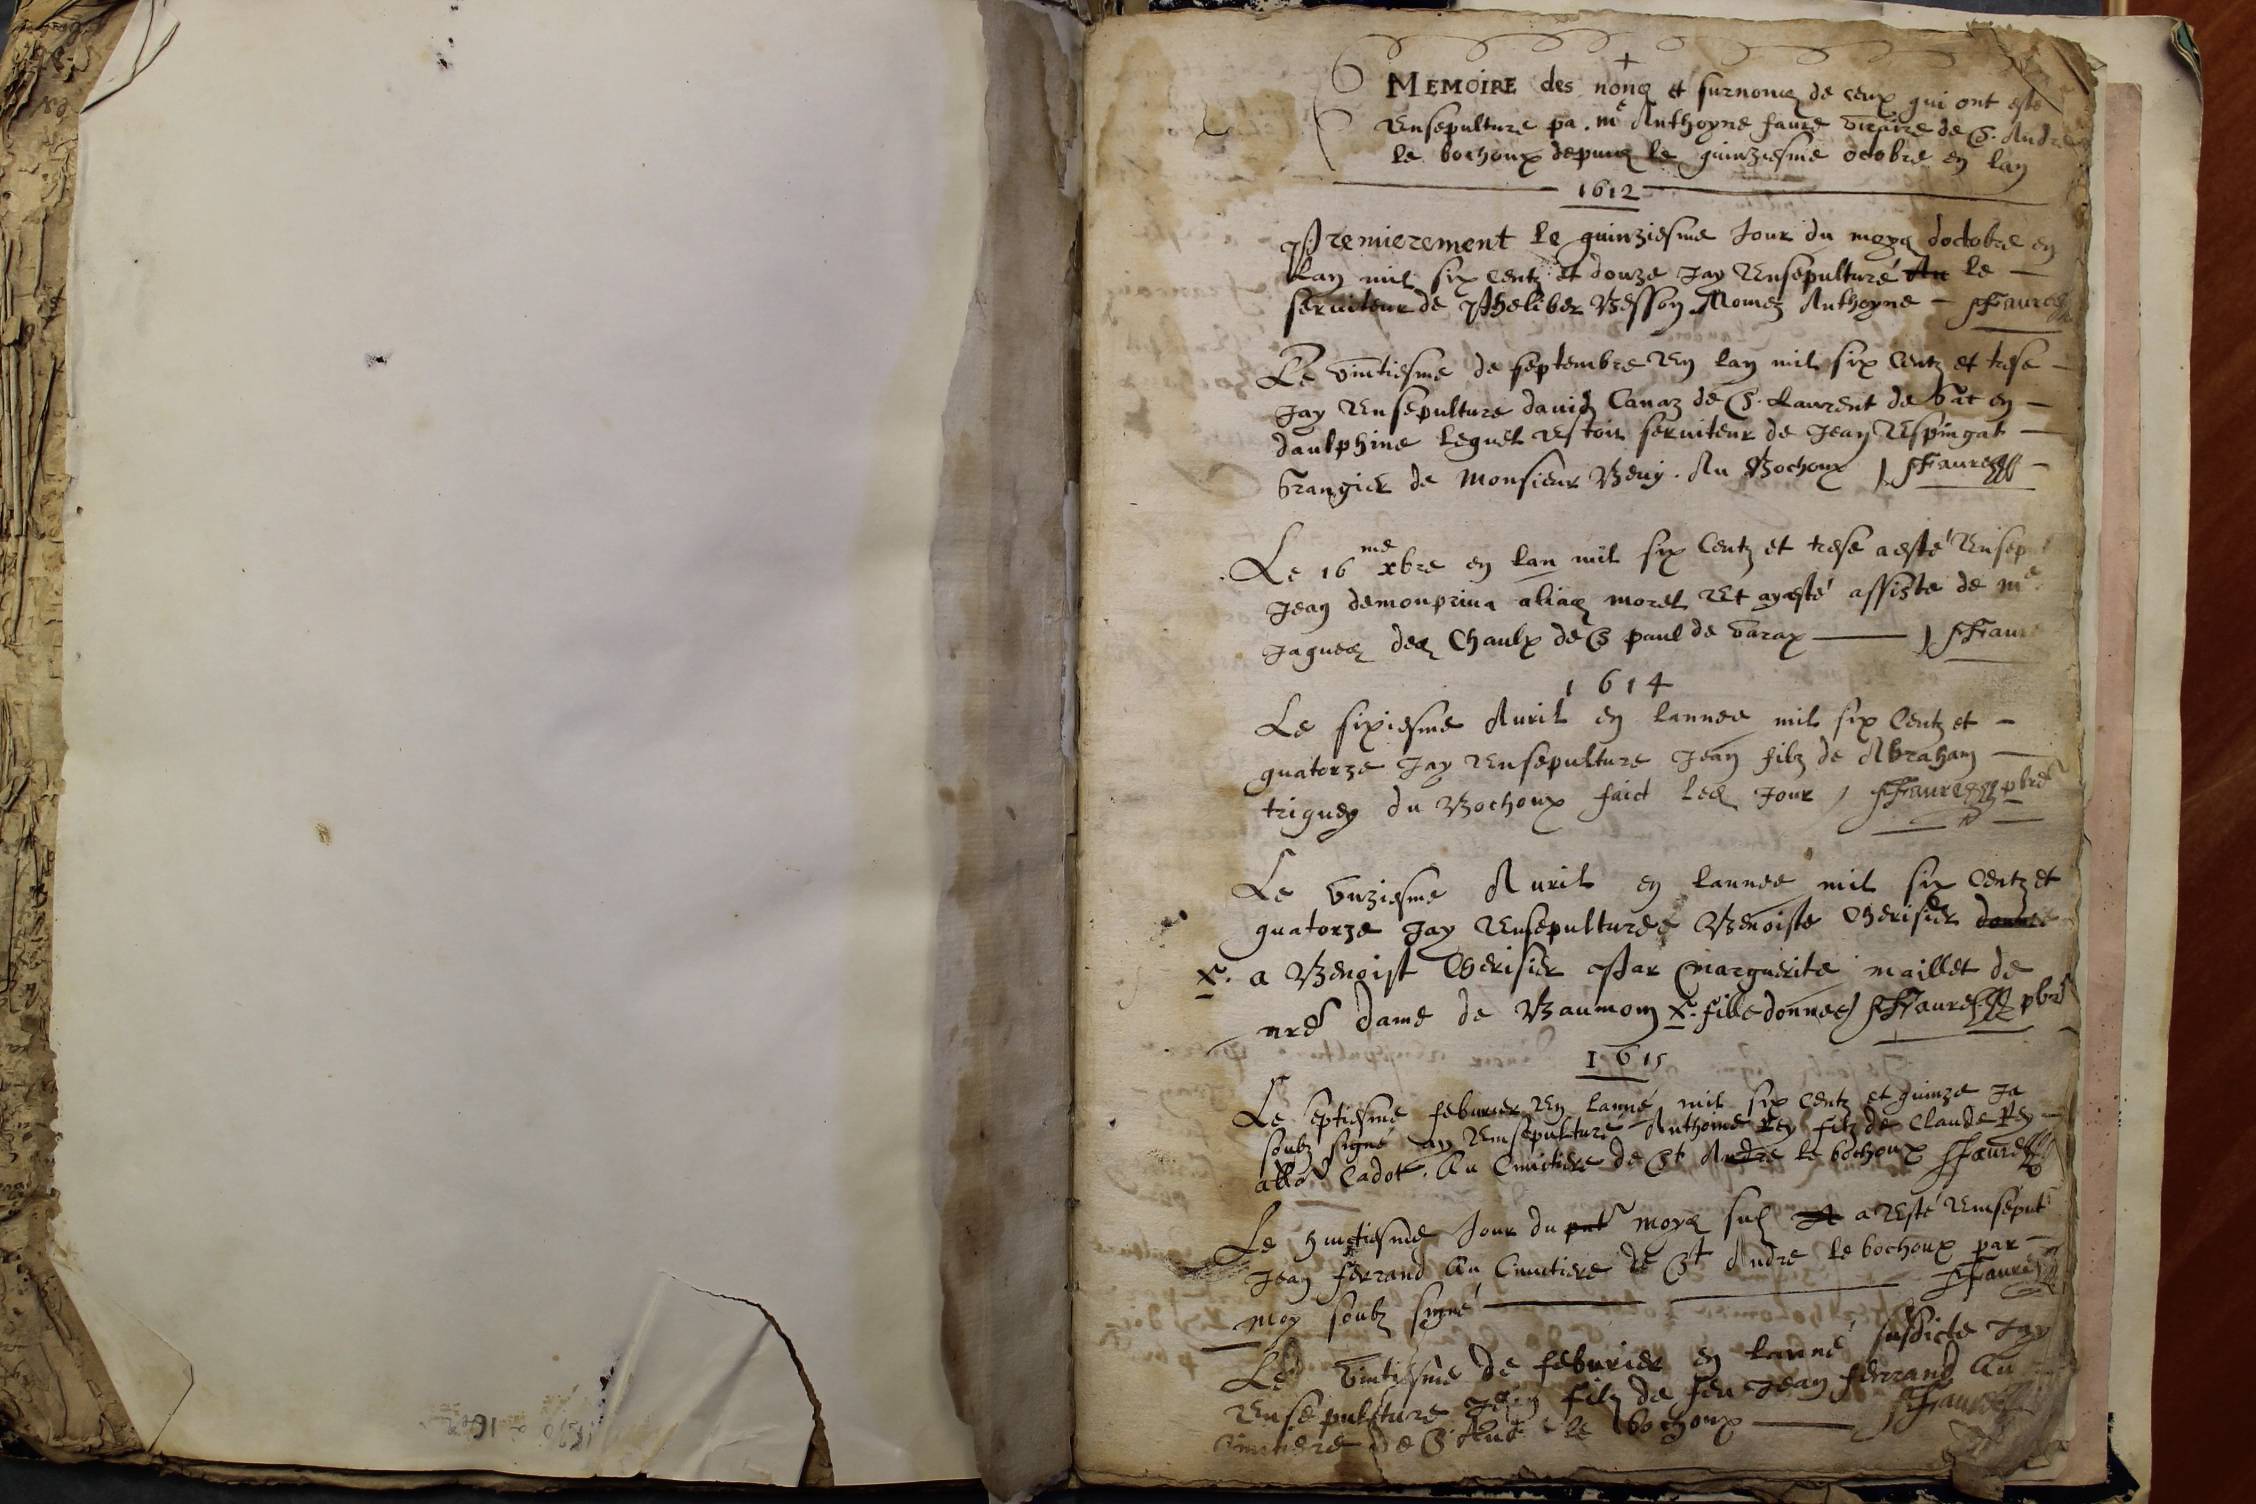 +
MEMOIRE des noms et surnoms de ceux qui ont esté
Ensepulture pa. me Anthoyne faure vicaire de S. Andre
le bochoux depuis le quinziesme octobre en lan
1612
Premierement le quinziesme Jour du moys doctobre en
lan mil six centz et douze Jay Ensepulturé Au le
seruiteur de Pheliber Besson Nomez Anthoyne Faure
Le vintiesme de septembre En lan mil six Centz et trese
Jay Ensepulture dauid Canaz de S. Laurent de en
daulphine lequel Estoit seruiteur de Jean Espingat
Grangier de Monsieur Beuy. Au Bochoux Faure
Le 16 me xbre en lan mil six Centz et trese aesté Ensep
Jean demonprina alias morel Et ayesté assizte de me
Jaques des Chaulx de S paul de varax Faure
1614
Le sixiesme Auril en lannee mil six Centz et
quatorze Jay Ensepulture Jean filz de Abraham
triguey du Bochoux faict les Jour Faure pbre
Le vnziesme Auril en lannee mil six Centz et
quatorze Jay Ensepulturee Benoiste Cherisier donnee
X. a Benoist Cherisier Par marguerite maillet de
nre dame de Baumom X. fille donnee Faure pbre
1615
Le septiesme feburier En lanné mil six Centz et quinze Je
soubz signé ay Ensepulturé Anthoine Rey filz de Claude Rey
Cadot. Au Cimitiere de St Andre le bochoux Faure
Le huictiesme Jour du pnt moys sus Je a Esté Ensepult
Jean ferrand Au Cimitiere de St Andre le bochoux par
moy soubz signé Faure
Le vintiesme de feburier en lanné susdicte Jay
Ensepulture Jean filz de feu Jean ferrand Au
Cimitiere de S. Andre le bochoux Faure